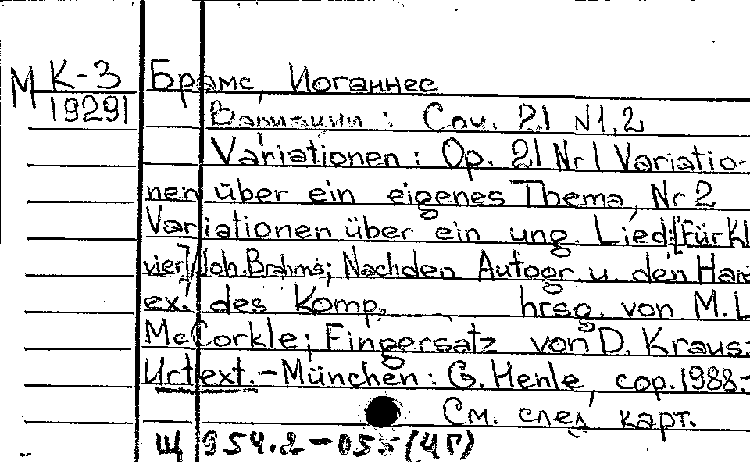 М К-3 Брамс, Иоганнес
19291 Вариации : Соч. 21 N1,2
Variationen : Op. 21 Nr1 Variatio-
nen über ein eigenes Thema, Nr 2
Variationen über ein ung. Lied:[für Kl
vier]/Joh. Brahms; Nach den Autogr. u. den Han
ex. des Komp. hrsg. von M. L
McCorkle; Fingersatz von D. Kraus.
Urtext.-München: G. Henle, cop. 1988.-
См. след карт.
Щ 954.2-055(4Г)